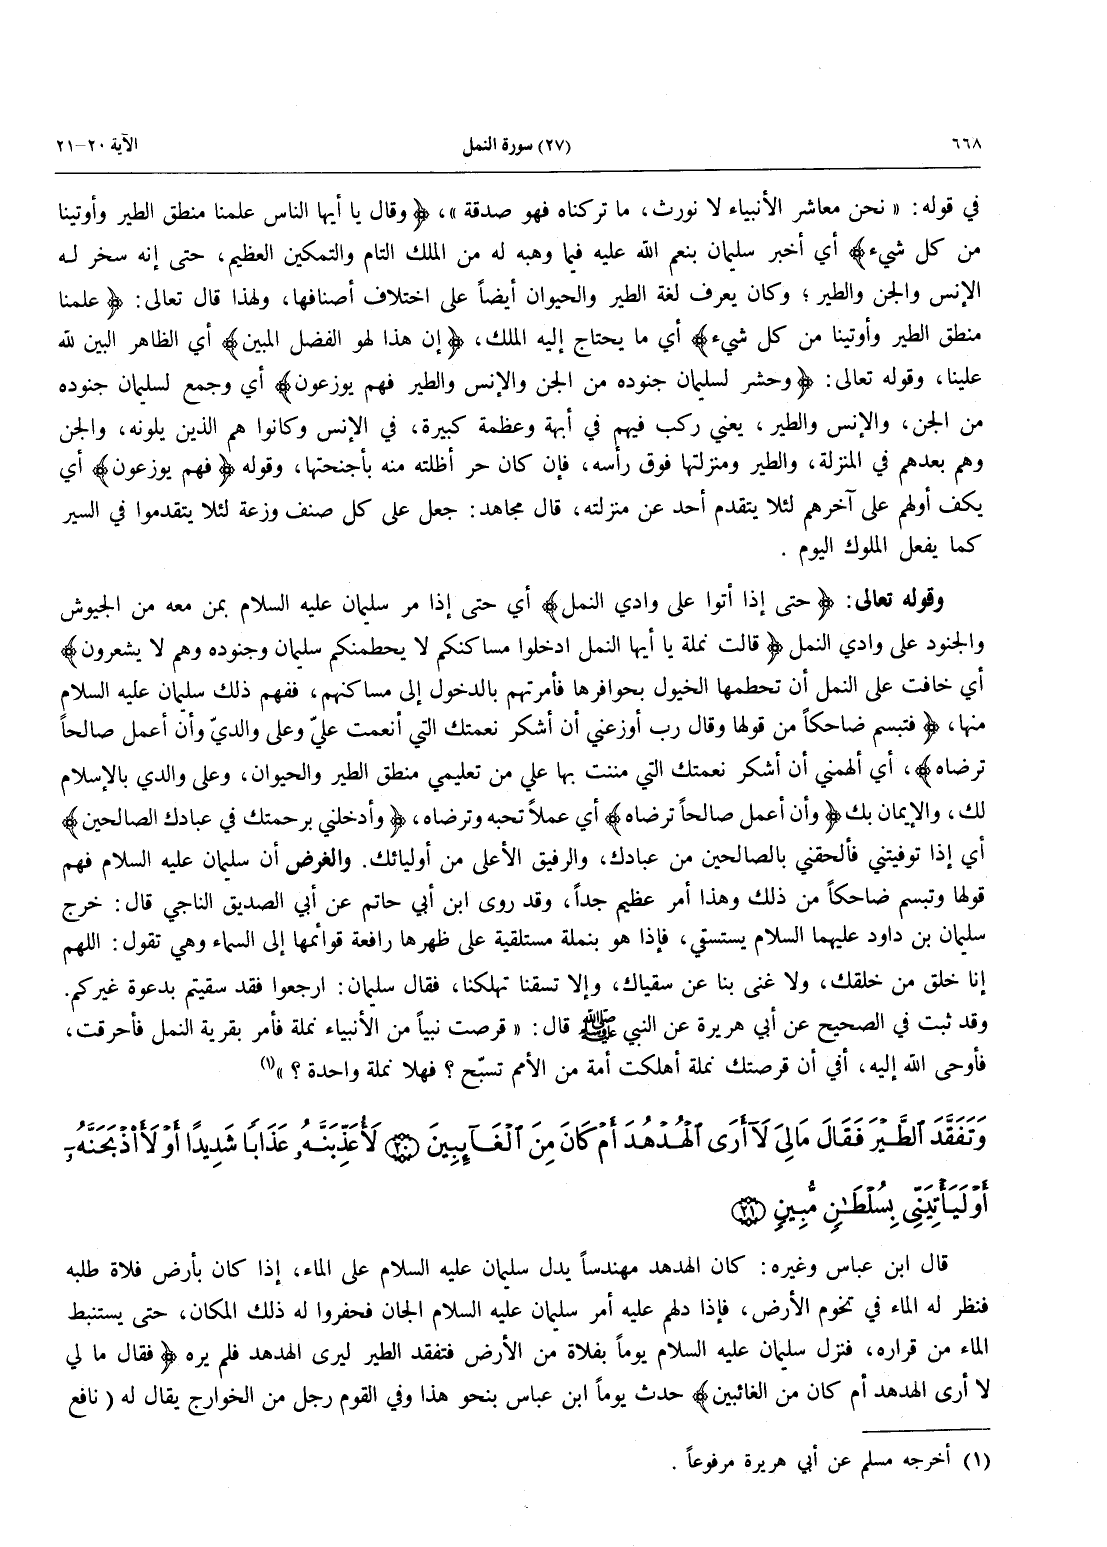 ٦٦٨ (٢٧) سورة النمل الآية ٢٠-٢١
في قوله: « نحن معاشر الأنبياء لا نورث، ما تركناه فهو صدقة »، ﴿ وقال يا أيها الناس علمنا منطق الطير وأوتينا
من كل شيء﴾ أي أخبر سليمان بنعم الله عليه فيما وهبه له من الملك التام والتمكين العظيم، حتى إنه سخر لـه
الإنس والجن والطير ؛ وكان يعرف لغة الطير والحيوان أيضاً على اختلاف أصنافها، ولهذا قال تعالى: ﴿ علمنا
منطق الطير وأوتينا من كل شيء﴾ أي ما يحتاج إليه الملك، ﴿ إن هذا لهو الفضل المبين﴾ أي الظاهر البين لله
علينا، وقوله تعالى: ﴿ وحشر لسليمان جنوده من الجن والإنس والطير فهم يوزعون﴾ أي وجمع لسليمان جنوده
من الجن، والإنس والطير ، يعني ركب فيهم في أبهة وعظمة كبيرة، في الإنس وكانوا هم الذين يلونه، والجن
وهم بعدهم في المنزلة، والطير ومنزلتها فوق رأسه، فإن كان حر أظلته منه بأجنحتها، وقوله ﴿ فهم يوزعون﴾ أي
يكف أولهم على آخرهم لئلا يتقدم أحد عن منزلته، قال مجاهد: جعل على كل صنف وزعة لئلا يتقدموا في السير
كما يفعل الملوك اليوم .
وقوله تعالى: ﴿ حتى إذا أتوا على وادي النمل﴾ أي حتى إذا مر سليمان عليه السلام بمن معه من الجيوش
والجنود على وادي النمل ﴿ قالت نملة يا أيها النمل ادخلوا مساكنكم لا يحطمنكم سليمان وجنوده وهم لا يشعرون﴾
أي خافت على النمل أن تحطمها الخيول بحوافرها فأمرتهم بالدخول إلى مساكنهم، ففهم ذلك سليمان عليه السلام
منها، ﴿ فتبسم ضاحكاً من قولها وقال رب أوزعني أن أشكر نعمتك التي أنعمت عليّ وعلى والديّ وأن أعمل صالحاً
ترضاه﴾، أي ألهمني أن أشكر نعمتك التي مننت بها علي من تعليمي منطق الطير والحيوان، وعلى والدي بالإسلام
لك، والإيمان بك ﴿ وأن أعمل صالحاً ترضاه﴾ أي عملاً تحبه وترضاه، ﴿ وأدخلني برحمتك في عبادك الصالحين﴾
أي إذا توفيتني فألحقني بالصالحين من عبادك، والرفيق الأعلى من أوليائك. والغرض أن سليمان عليه السلام فهم
قولها وتبسم ضاحكاً من ذلك وهذا أمر عظيم جداً، وقد روى ابن أبي حاتم عن أبي الصديق الناجي قال: خرج
سليمان بن داود عليهما السلام يستسقي، فإذا هو بنملة مستلقية على ظهرها رافعة قوائمها إلى السماء وهي تقول: اللهم
إنا خلق من خلقك، ولا غنى بنا عن سقياك، وإلا تسقنا تهلكنا، فقال سليمان: ارجعوا فقد سقيتم بدعوة غيركم.
وقد ثبت في الصحيح عن أبي هريرة عن النبي ﷺ قال: « قرصت نبياً من الأنبياء نملة فأمر بقرية النمل فأحرقت،
فأوحى الله إليه، أفي أن قرصتك نملة أهلكت أمة من الأمم تسبّح ؟ فهلا نملة واحدة ؟ »(١)
وَتَفَقَّدَ ٱلطَّيْرَ فَقَالَ مَالِىَ لَآ أَرَى ٱلْهُدْهُدَ أَمْ كَانَ مِنَ ٱلْغَآئِبِينَ ۝٢٠ لَأُعَذِّبَنَّهُۥ عَذَابًا شَدِيدًا أَوْ لَأَاْذْبَحَنَّهُۥٓ
أَوْ لَيَأْتِيَنِّى بِسُلْطَٰنٍ مُّبِينٍ ۝٢١
قال ابن عباس وغيره: كان الهدهد مهندساً يدل سليمان عليه السلام على الماء، إذا كان بأرض فلاة طلبه
فنظر له الماء في تخوم الأرض، فإذا دلهم عليه أمر سليمان عليه السلام الجان فحفروا له ذلك المكان، حتى يستنبط
الماء من قراره، فنزل سليمان عليه السلام يوماً بفلاة من الأرض فتفقد الطير ليرى الهدهد فلم يره ﴿ فقال ما لي
لا أرى الهدهد أم كان من الغائبين﴾ حدث يوماً ابن عباس بنحو هذا وفي القوم رجل من الخوارج يقال له ( نافع
(١) أخرجه مسلم عن أبي هريرة مرفوعاً .